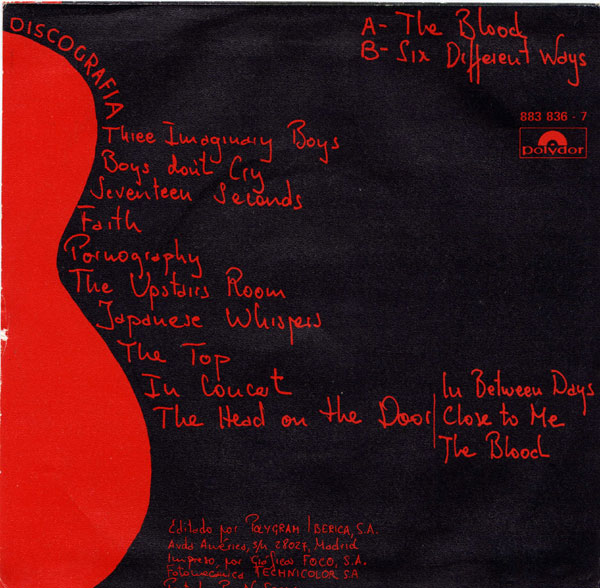 DISCOGRAFIA
A- The Blood
B- Six Different Ways
883 836 - 7
polydor
Three Imaginary Boys
Boys don't Cry
Seventeen Seconds
Faith
Pornography
The Upstairs Room
Japanese Whispers
The Top
In Concert
The Head on the Door
In Between Days
Close to Me
The Blood
Editado por POLYGRAM IBERICA, S.A.
Avda América, s/n 28027, Madrid
Impreso, por Gráficas FOCO, S.A.
Fotomecánica TECHNICOLOR SA